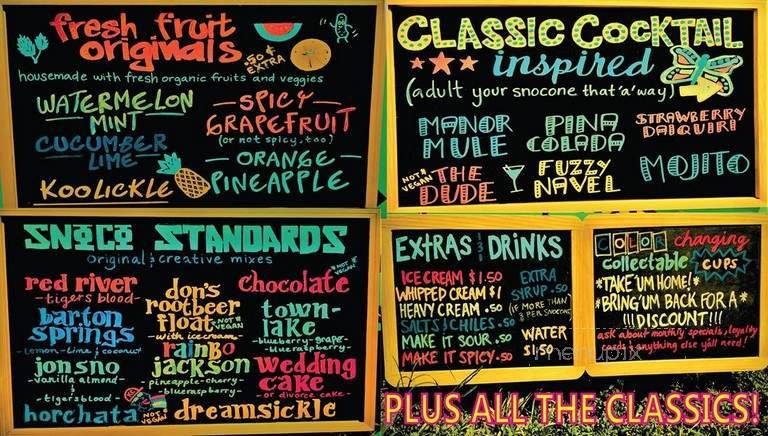 fresh fruit
originals
.50 ¢
EXTRA
housemade with fresh organic fruits and veggies
WATERMELON
MINT
CUCUMBER
LIME
KOOLICKLE
SPICY
GRAPEFRUIT
(or not spicy, too)
ORANGE
PINEAPPLE
CLASSIC COCKTAIL
inspired
(adult your snocone that 'a' way)
MANOR
MULE
PINA
COLADA
STRAWBERRY
DAIQUIRI
NOT
VEGAN
THE
DUDE
FUZZY
NAVEL
MOJITO
SNOCO STANDARDS
original & creative mixes
red river
-tigers blood-
barton
springs
-lemon-lime & coconut
jon sno
-vanilla almond-
&
-tigersblood-
horchata
NOT
VEGAN
don's
rootbeer
float
NOT
VEGAN
-with icecream-
rainbo
jackson
-pineapple-cherry-
-blueraspberry-
dreamsickle
NOT
VEGAN
chocolate
town-
lake
-blueberry-grape-
-blueraspberry-
wedding
cake
-or divorce cake-
EXtRAS & DRiNKS
ICE CREAM $1.50
WHIPPED CREAM $1
HEAVY CREAM .50
SALTS & CHILES .50
MAKE IT SOUR .50
MAKE IT SPICY .50
EXTRA
SYRUP .50
(IF MORE THAN
3 PER SNOCONE)
WATER
$1.50
COLOR changing
collectable CUPS
*TAKE 'UM HOME!*
*BRING 'UM BACK FOR A*
!!!DISCOUNT!!!
ask about monthly specials, loyalty
cards & anything else yall need!
menupix
PLUS ALL THE CLASSICS!